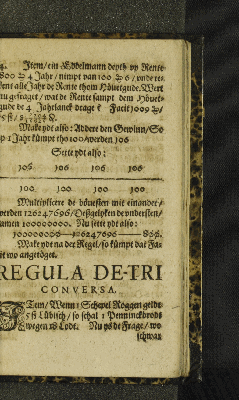 4. Item/ein Eddelmann deyth vp Rente
800 ₰ 4 Jahr/ nimpt van 100 ₰ 6/ vnde re-
kent alle Jahr de Rente thom Höuetgude. Wert
nu gefraget/ wat de Rente sampt dem Höuet-
gude de 4 Jahrlanck drage? Facit 1009 ₰/
Make ydt also: Addere den Gewinn/ So
vp 1 Jahr kümpt tho 100/ werden 106
Sette ydt also:
106 106 106 106
100 100 100 100
Multiplicere de böuesten mit einander/
werden 126247696/ Deßgelyken de vndersten/
kamen 100000000. Nu sette ydt also:
100000000 — 126247696 — 800.
Make ydt na der Regel/ so kümpt dat Fa-
cit wo angetöget.
REGULA DE-TRI
CONVERSA.
ITem/ Wenn 1 Schepel Roggen geldt
5 ß Lübisch/ so schal 1 Penninckbrodt
wegen 12 Lodt. Nu ys de Frage/ wo
schwar